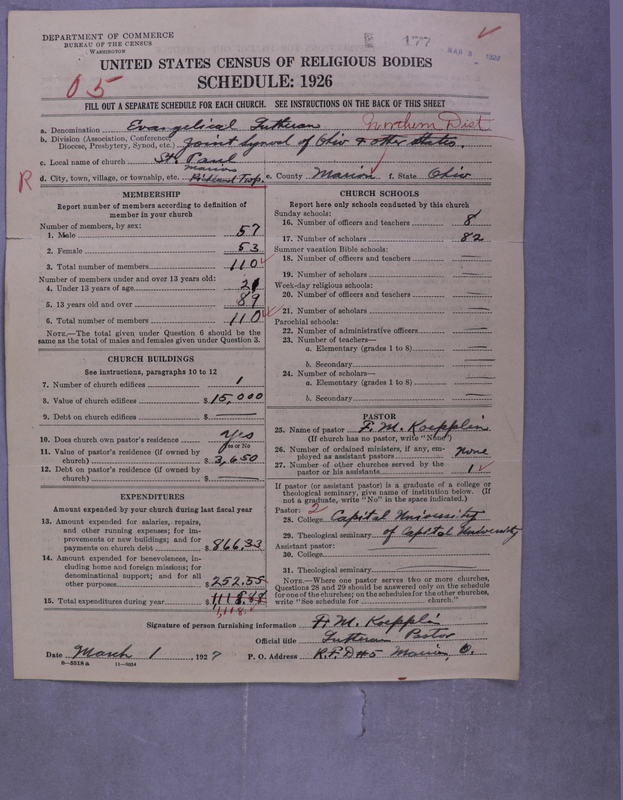 DEPARTMENT OF COMMERCE
BUREAU OF THE CENSUS
WASHINGTON
177
MAR 3 1928
UNITED STATES CENSUS OF RELIGIOUS BODIES
SCHEDULE: 1926
05
FILL OUT A SEPARATE SCHEDULE FOR EACH CHURCH. SEE INSTRUCTIONS ON THE BACK OF THIS SHEET
a. Denomination Evangelical Lutheran Northern Dist
b. Division (Association, Conference, Diocese, Presbytery, Synod, etc.) Joint Synod of Ohio & other States.
c. Local name of church St. Paul
R
Marion
d. City, town, village, or township, etc. Richland Twp. e. County Marion f. State Ohio
MEMBERSHIP
Report number of members according to definition of
member in your church
Number of members, by sex:
1. Male 57
2. Female 53
3. Total number of members 110
Number of members under and over 13 years old:
4. Under 13 years of age 21
5. 13 years old and over 89
6. Total number of members 110
NOTE.—The total given under Question 6 should be the
same as the total of males and females given under Question 3.
CHURCH BUILDINGS
See instructions, paragraphs 10 to 12
7. Number of church edifices 1
8. Value of church edifices $ 15,000
9. Debt on church edifices $ —
10. Does church own pastor's residence Yes
Yes or No
11. Value of pastor's residence (if owned by
church) $ 3,650
12. Debt on pastor's residence (if owned by
church) $ —
EXPENDITURES
Amount expended by your church during last fiscal year
13. Amount expended for salaries, repairs,
and other running expenses; for im-
provements or new buildings; and for
payments on church debt $ 866.33
14. Amount expended for benevolences, in-
cluding home and foreign missions; for
denominational support; and for all
other purposes $ 252.55
15. Total expenditures during year $
CHURCH SCHOOLS
Report here only schools conducted by this church
Sunday schools:
16. Number of officers and teachers 8
17. Number of scholars 82
Summer vacation Bible schools:
18. Number of officers and teachers —
19. Number of scholars —
Week-day religious schools:
20. Number of officers and teachers —
21. Number of scholars —
Parochial schools:
22. Number of administrative officers —
23. Number of teachers—
a. Elementary (grades 1 to 8) —
b. Secondary —
24. Number of scholars—
a. Elementary (grades 1 to 8) —
b. Secondary —
PASTOR
25. Name of pastor F. M. Koepplin
(If church has no pastor, write "None")
26. Number of ordained ministers, if any, em-
ployed as assistant pastors None
27. Number of other churches served by the
pastor or his assistants 1
If pastor (or assistant pastor) is a graduate of a college or
theological seminary, give name of institution below. (If
not a graduate, write "No" in the space indicated.)
Pastor: 2
28. College Capital University
29. Theological seminary of Capital University
Assistant pastor:
30. College —
31. Theological seminary —
NOTE.—Where one pastor serves two or more churches,
Questions 28 and 29 should be answered only on the schedule
for one of the churches; on the schedules for the other churches,
write "See schedule for church."
Signature of person furnishing information F. M. Koepplin
Official title Lutheran Pastor
Date March 1, 1927 P. O. Address R.F.D #5 Marion, O.
8—5518a 11—9034